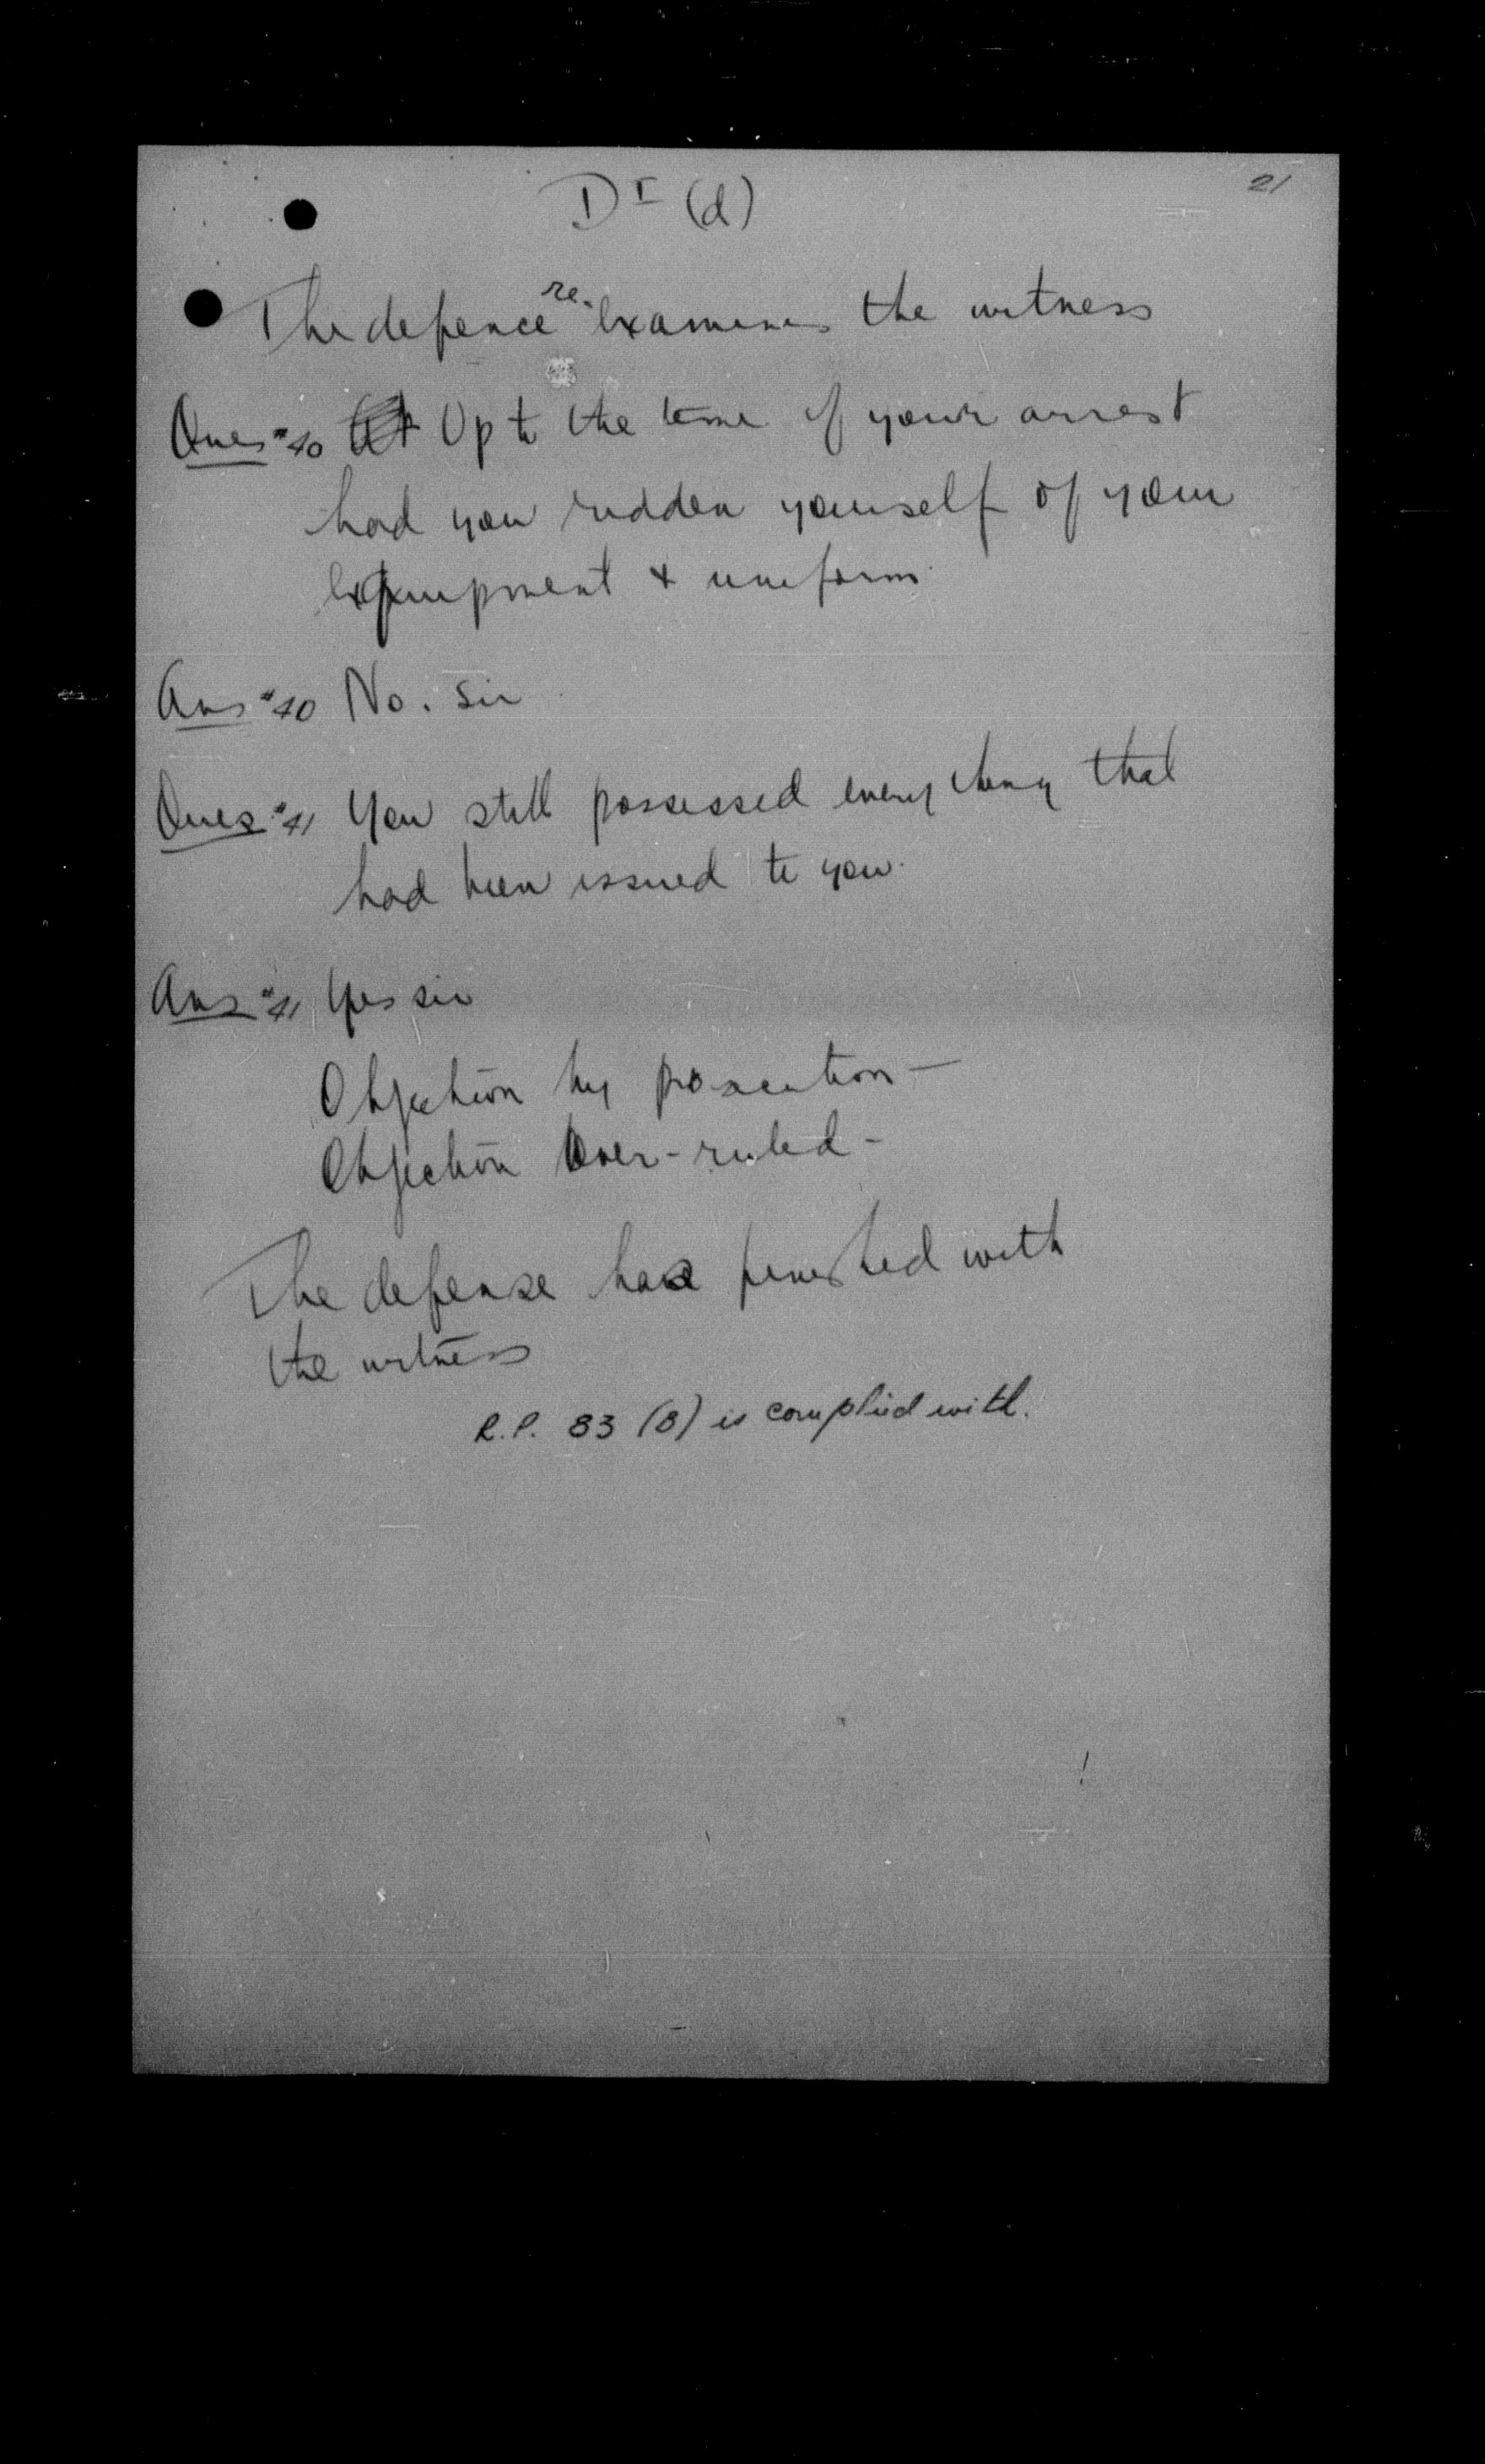 21
D I (d)
The defence re-examines the witness
Ques #40 Up to the time of your arrest
had you ridden yourself of your
equipment + uniform.
Ans #40 No. Sir
Ques #41 You still possessed everything that
had been issued to you.
Ans #41 Yes sir
Objection by prosecution —
Objection Over-ruled -
The defense has finished with
the witness
R.P. 83 (B) is complied with.